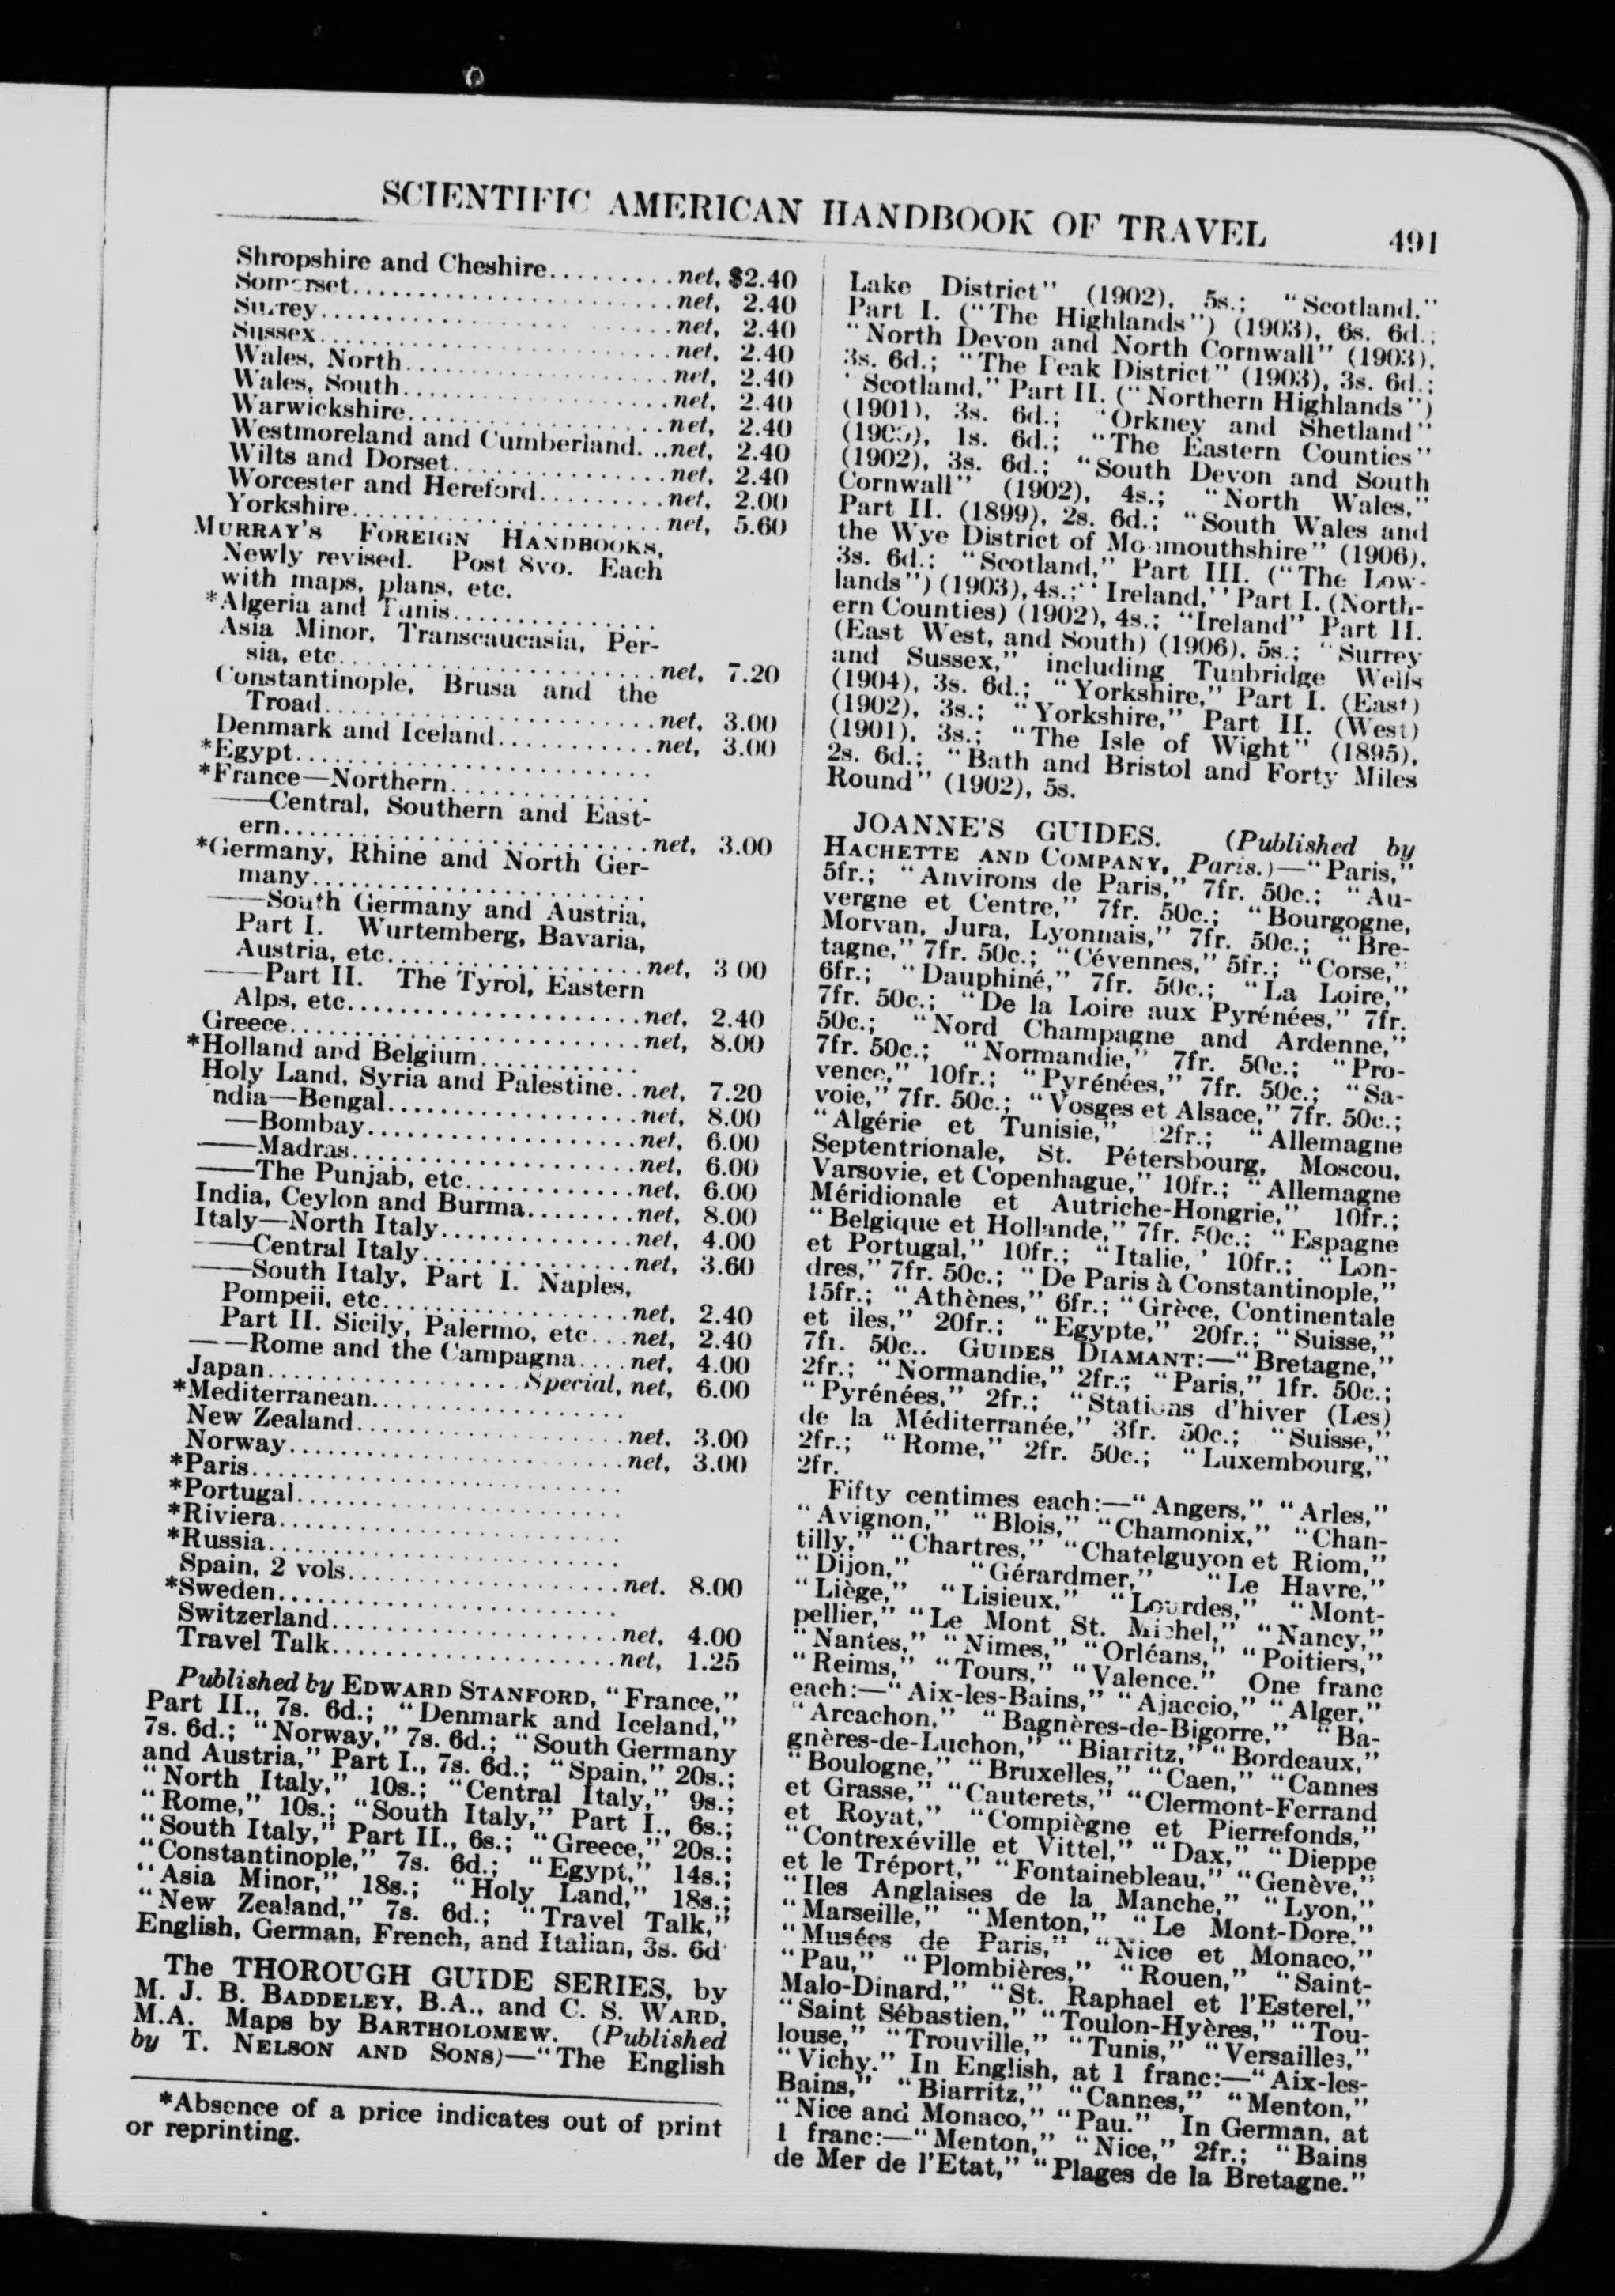 SCIENTIFIC AMERICAN HANDBOOK OF TRAVEL 491
Shropshire and Cheshire.........net, $2.40
Somerset........................net, 2.40
Surrey..........................net, 2.40
Sussex..........................net, 2.40
Wales, North....................net, 2.40
Wales, South....................net, 2.40
Warwickshire....................net, 2.40
Westmoreland and Cumberland. ..net, 2.40
Wilts and Dorset................net, 2.40
Worcester and Hereford..........net, 2.00
Yorkshire.......................net, 5.60
MURRAY'S FOREIGN HANDBOOKS,
Newly revised. Post 8vo. Each
with maps, plans, etc.
*Algeria and Tunis...............
Asia Minor, Transcaucasia, Per-
sia, etc........................net, 7.20
Constantinople, Brusa and the
Troad...........................net, 3.00
Denmark and Iceland............net, 3.00
*Egypt...........................
*France—Northern...............
——Central, Southern and East-
ern.............................net, 3.00
*Germany, Rhine and North Ger-
many...........................
——South Germany and Austria,
Part I. Wurtemberg, Bavaria,
Austria, etc....................net, 3 00
——Part II. The Tyrol, Eastern
Alps, etc.......................net, 2.40
Greece..........................net, 8.00
*Holland and Belgium.............
Holy Land, Syria and Palestine. .net, 7.20
ndia—Bengal....................net, 8.00
—Bombay.......................net, 6.00
——Madras......................net, 6.00
——The Punjab, etc.............net, 6.00
India, Ceylon and Burma........net, 8.00
Italy—North Italy...............net, 4.00
——Central Italy................net, 3.60
——South Italy, Part I. Naples,
Pompeii, etc....................net, 2.40
Part II. Sicily, Palermo, etc...net, 2.40
——Rome and the Campagna....net, 4.00
Japan....................Special, net, 6.00
*Mediterranean...................
New Zealand....................net. 3.00
Norway.........................net, 3.00
*Paris...........................
*Portugal........................
*Riviera.........................
*Russia..........................
Spain, 2 vols...................net. 8.00
*Sweden.........................
Switzerland.....................net, 4.00
Travel Talk.....................net, 1.25
Published by EDWARD STANFORD, "France,"
Part II., 7s. 6d.; "Denmark and Iceland,"
7s. 6d.; "Norway," 7s. 6d.; "South Germany
and Austria," Part I., 7s. 6d.; "Spain," 20s.;
"North Italy," 10s.; "Central Italy," 9s.;
"Rome," 10s.; "South Italy," Part I., 6s.;
"South Italy," Part II., 6s.; "Greece," 20s.;
"Constantinople," 7s. 6d.; "Egypt," 14s.;
"Asia Minor," 18s.; "Holy Land," 18s.;
"New Zealand," 7s. 6d.; "Travel Talk,"
English, German, French, and Italian, 3s. 6d
The THOROUGH GUIDE SERIES, by
M. J. B. BADDELEY, B.A., and C. S. WARD,
M.A. Maps by BARTHOLOMEW. (Published
by T. NELSON AND SONS)—"The English
*Absence of a price indicates out of print
or reprinting.
Lake District" (1902), 5s.; "Scotland,"
Part I. ("The Highlands") (1903), 6s. 6d.;
"North Devon and North Cornwall" (1903),
3s. 6d.; "The Peak District" (1903), 3s. 6d.;
"Scotland," Part II. ("Northern Highlands")
(1901), 3s. 6d.; "Orkney and Shetland"
1s. 6d.; "The Eastern Counties"
(1902), 3s. 6d.; "South Devon and South
Cornwall" (1902), 4s.; "North Wales,"
Part II. (1899), 2s. 6d.; "South Wales and
the Wye District of Monmouthshire" (1906),
3s. 6d.; "Scotland," Part III. ("The Low-
lands") (1903), 4s.; "Ireland," Part I. (North-
ern Counties) (1902), 4s.; "Ireland" Part II.
(East West, and South) (1906), 5s.; "Surrey
and Sussex," including Tunbridge Wells
(1904), 3s. 6d.; "Yorkshire," Part I. (East)
(1902), 3s.; "Yorkshire," Part II. (West)
(1901), 3s.; "The Isle of Wight" (1895),
2s. 6d.; "Bath and Bristol and Forty Miles
Round" (1902), 5s.
JOANNE'S GUIDES. (Published by
HACHETTE AND COMPANY, Paris.)—"Paris,"
5fr.; "Anvirons de Paris," 7fr. 50c.; "Au-
vergne et Centre," 7fr. 50c.; "Bourgogne,
Morvan, Jura, Lyonnais," 7fr. 50c.; "Bre-
tagne," 7fr. 50c.; "Cévennes," 5fr.; "Corse,"
6fr.; "Dauphiné," 7fr. 50c.; "La Loire,"
7fr. 50c.; "De la Loire aux Pyrénées," 7fr.
50c.; "Nord Champagne and Ardenne,"
7fr. 50c.; "Normandie," 7fr. 50c.; "Pro-
vence," 10fr.; "Pyrénées," 7fr. 50c.; "Sa-
voie," 7fr. 50c.; "Vosges et Alsace," 7fr. 50c.;
"Algérie et Tunisie," 2fr.; "Allemagne
Septentrionale, St. Pétersbourg, Moscou,
Varsovie, et Copenhague," 10fr.; "Allemagne
Méridionale et Autriche-Hongrie," 10fr.;
"Belgique et Hollande," 7fr. 50c.; "Espagne
et Portugal," 10fr.; "Italie,' 10fr.; "Lon-
dres," 7fr. 50c.; "De Paris à Constantinople,"
15fr.; "Athènes," 6fr.; "Grèce, Continentale
et iles," 20fr.; "Egypte," 20fr.; "Suisse,"
7fr. 50c.. GUIDES DIAMANT:—"Bretagne,"
2fr.; "Normandie," 2fr.; "Paris," 1fr. 50c.;
"Pyrénées," 2fr.; "Stations d'hiver (Les)
de la Méditerranée," 3fr. 50c.; "Suisse,"
2fr.; "Rome," 2fr. 50c.; "Luxembourg,"
2fr.
Fifty centimes each:—"Angers," "Arles,"
"Avignon," "Blois," "Chamonix," "Chan-
tilly," "Chartres," "Chatelguyon et Riom,"
"Dijon," "Gérardmer," "Le Havre,"
"Liège," "Lisieux," "Lourdes," "Mont-
pellier," "Le Mont St. Michel," "Nancy,"
"Nantes," "Nimes," "Orléans," "Poitiers,"
"Reims," "Tours," "Valence." One franc
each:—"Aix-les-Bains," "Ajaccio," "Alger,"
"Arcachon," "Bagnères-de-Bigorre," "Ba-
gnères-de-Luchon," "Biarritz," "Bordeaux,"
"Boulogne," "Bruxelles," "Caen," "Cannes
et Grasse," "Cauterets," "Clermont-Ferrand
et Royat," "Compiègne et Pierrefonds,"
"Contrexéville et Vittel," "Dax," "Dieppe
et le Tréport," "Fontainebleau," "Genève,"
"Iles Anglaises de la Manche," "Lyon,"
"Marseille," "Menton," "Le Mont-Dore,"
"Musées de Paris," "Nice et Monaco,"
"Pau," "Plombières," "Rouen," "Saint-
Malo-Dinard," "St. Raphael et l'Esterel,"
"Saint Sébastien," "Toulon-Hyères," "Tou-
louse," "Trouville," "Tunis," "Versailles,"
"Vichy." In English, at 1 franc:—"Aix-les-
Bains," "Biarritz," "Cannes," "Menton,"
"Nice and Monaco," "Pau." In German, at
1 franc:—"Menton," "Nice," 2fr.; "Bains
de Mer de l'Etat," "Plages de la Bretagne."